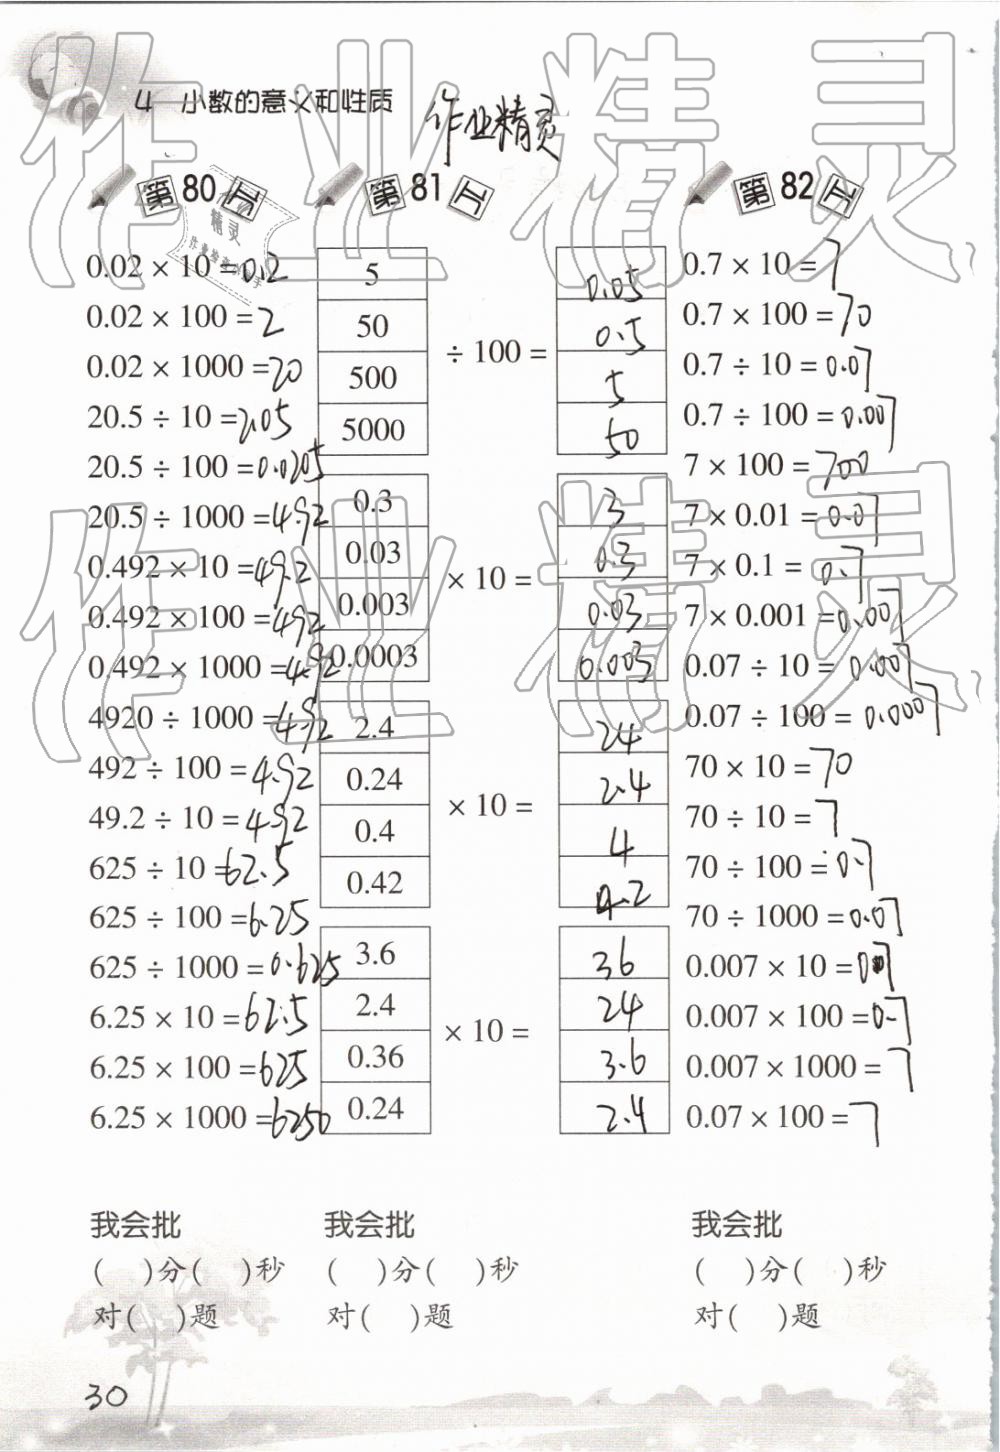 4 小数的意义和性质 作业精灵
第80天
0.02 × 10 =0.2
0.02 × 100 =2
0.02 × 1000 =20
20.5 ÷ 10 =2.05
20.5 ÷ 100 =0.0205
20.5 ÷ 1000 =4.92
0.492 × 10 =49.2
0.492 × 100 =492
0.492 × 1000 =4.92
4920 ÷ 1000 =4.92
492 ÷ 100 =4.92
49.2 ÷ 10 =4.92
625 ÷ 10 =62.5
625 ÷ 100 =6.25
625 ÷ 1000 =0.625
6.25 × 10 =62.5
6.25 × 100 =625
6.25 × 1000 =6250
我会批
( )分( )秒
对( )题
第81天
5 0.05
50 0.5
÷ 100 =
500 5
5000 50
0.3 3
0.03 0.3
× 10 =
0.003 0.03
0.0003 0.003
2.4 24
0.24 2.4
× 10 =
0.4 4
0.42 4.2
3.6 36
2.4 24
× 10 =
0.36 3.6
0.24 2.4
我会批
( )分( )秒
对( )题
第82天
0.7 × 10 =7
0.7 × 100 =70
0.7 ÷ 10 =0.07
0.7 ÷ 100 =0.007
7 × 100 =700
7 × 0.01 =0.07
7 × 0.1 =0.7
7 × 0.001 =0.007
0.07 ÷ 10 =0.007
0.07 ÷ 100 =0.0007
70 × 10 =70
70 ÷ 10 =7
70 ÷ 100 =0.7
70 ÷ 1000 =0.07
0.007 × 10 =0.07
0.007 × 100 =0.7
0.007 × 1000 =7
0.07 × 100 =7
我会批
( )分( )秒
对( )题
30
作业精灵
作业精灵